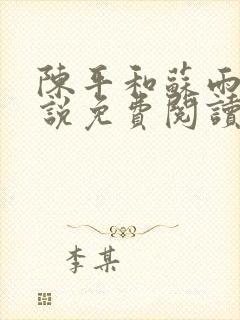 陳平和蘇雨
說免費閱讀
李某